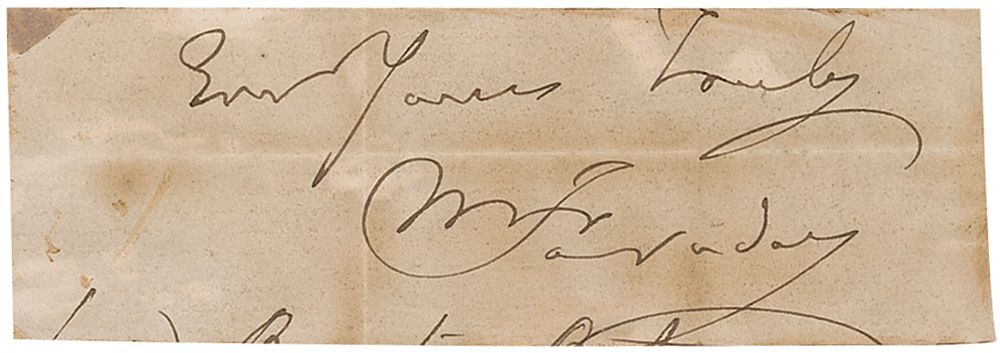 Ever Yours Truly
M Faraday